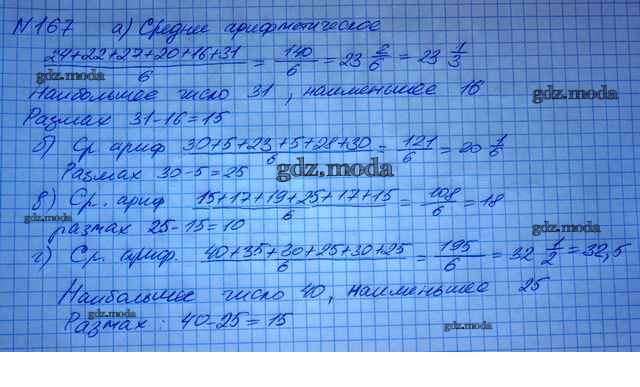 N 167 а) Среднее арифметическое
(24+22+27+20+16+31)/6 = 140/6 = 23 2/6 = 23 1/3
gdz.moda
Наибольшее число 31, наименьшее 16
gdz.moda
Размах 31-16=15
б) Ср. ариф (30+5+23+5+28+30)/6 = 121/6 = 20 1/6
Размах 30-5=25
gdz.moda
в) Ср. ариф (15+17+19+25+17+15)/6 = 108/6 = 18
gdz.moda
размах 25-15=10
gdz.moda
г) Ср. ариф. (40+35+30+25+30+25)/6 = 195/6 = 32 1/2 = 32,5
gdz.moda
Наибольшее число 40, наименьшее 25
gdz.moda
Размах: 40-25=15
gdz.moda